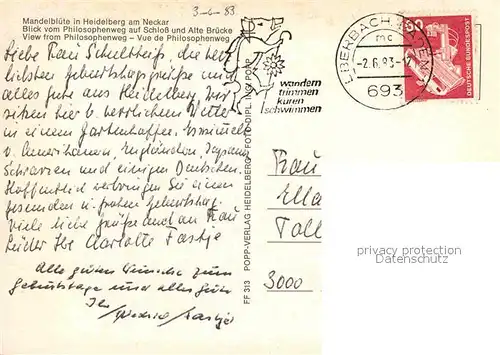 3-6-83
Mandelblüte in Heidelberg am Neckar
Blick vom Philosophenweg auf Schloß und Alte Brücke
View from Philosophenweg – Vue de Philosophenweg
Liebe Frau Schultheiß, die herz-
lichsten Geburtstagsgrüße und
alles gute aus Heidelberg. Wir
sitzen hier b. herrlichem Wetter
in einem Gartenkaffee.
v. Amerikanern, Engländern, Japanern
Schwarzen und einigen Deutschen.
Hoffentlich verbringen Sie einen
gesunden u. frohen Geburtstag.
Viele liebe Grüße auch an Frau
Ihre Charlotte Fastje
Alle guten Wünsche zum
Geburtstage und alles Gute
Ihr Fastje
FF 313 POPP-VERLAG HEIDELBERG FOTO: DIPL. ING. POPP
wandern
trimmen
kuren
schwimmen
EBERBACH, BADEN 1
mc
-2.6.83-17
693
50
DEUTSCHE BUNDESPOST
INDUSTRIE UND TECHNIK
Frau
Ella
3000
privacy protection
Datenschutz